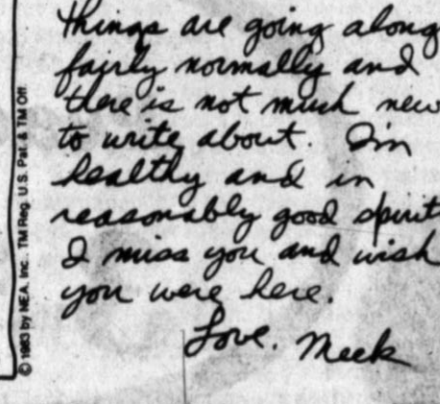 things are going along
fairly normally and
there is not much new
to write about. I'm
healthy and in
reasonably good spirit
I miss you and wish
you were here.
Love. Meek
© 1983 by NEA, Inc. TM Reg. U.S. Pat. & TM Off.